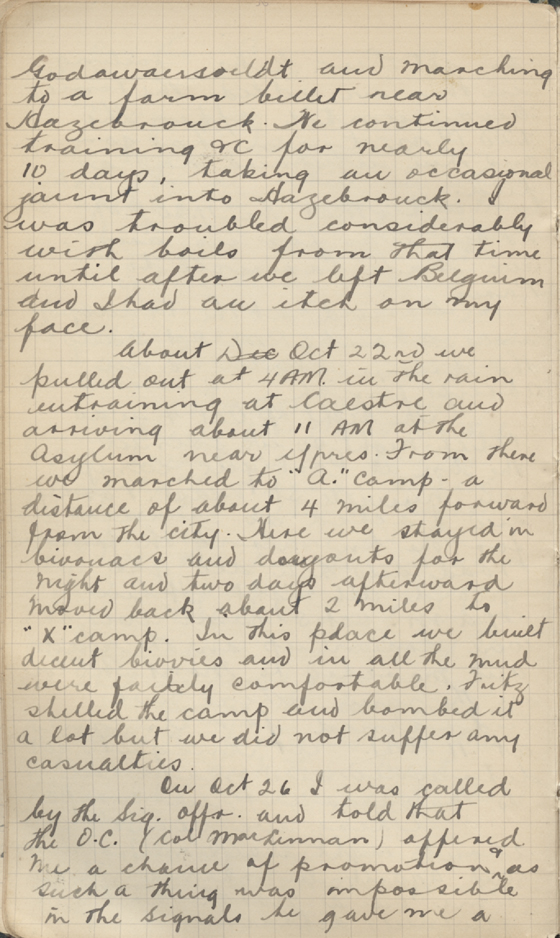 Godawaersveldt and marching
to a farm billet near
Hazebrouck. We continued
training &C for nearly
10 days, taking an occasional
jaunt into Hazebrouck. I
was troubled considerably
with boils from that time
until after we left Belgium
and I had an itch on my
face.
About Dec Oct 22nd we
pulled out at 4 AM. in the rain
entraining at Caestre and
arriving about 11 AM at the
Asylum near Ypres. From there
we marched to "A." camp - a
distance of about 4 miles forward
from the city. Here we stayed in
bivouacs and dougouts for the
night and two days afterward
moved back about 2 miles to
"X" camp. In this place we built
decent bivvies and in all the mud
were fairly comfortable. Fritz
shelled the camp and bombed it
a lot but we did not suffer any
casualties.
On Oct 26 I was called
by the Sig. offr. and told that
the O.C. (Col MacKinnan) offered
me a chance of promotion & as
such a thing was impossible
in the signals he gave me a